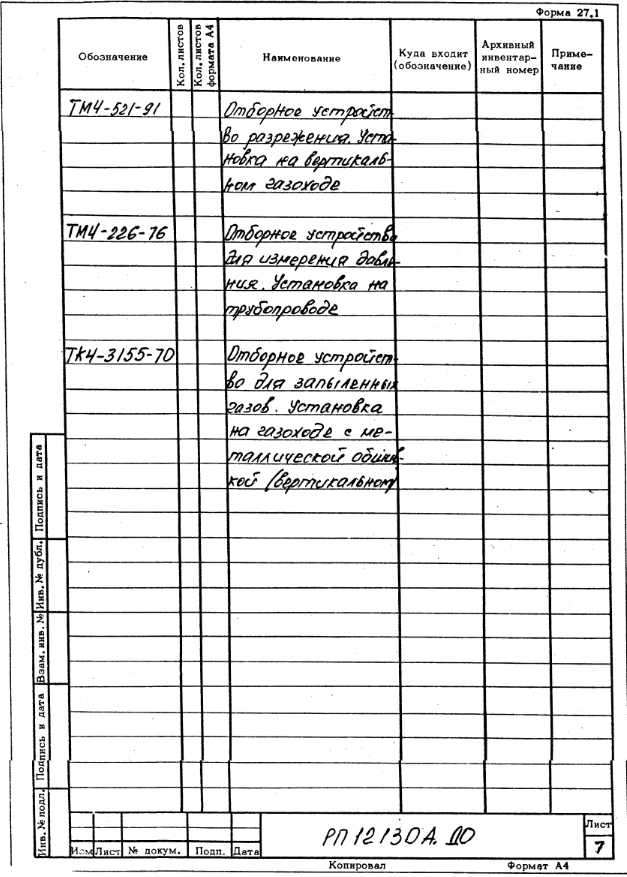 Форма 27.1
Обозначение
Кол. листов
Кол. листов формата А4
Наименование
Куда входит (обозначение)
Архивный инвентар-ный номер
Приме-чание
ТМ4-521-91 Отборное устройст-
во разрежения. Уста-
новка на вертикаль-
ном газоходе
ТМ4-226-76 Отборное устройство
для измерения давле-
ния. Установка на
трубопроводе
ТК4-3155-70 Отборное устройст-
во для запыленных
газов. Установка
на газоходе с ме-
таллической обшив-
кой (вертикальном)
Подпись и дата
Инв. № дубл.
Взам. инв. №
Подпись и дата
Инв. № подл.
Изм Лист № докум. Подп. Дата
РП12130А.ДО
Лист
7
Копировал Формат А4